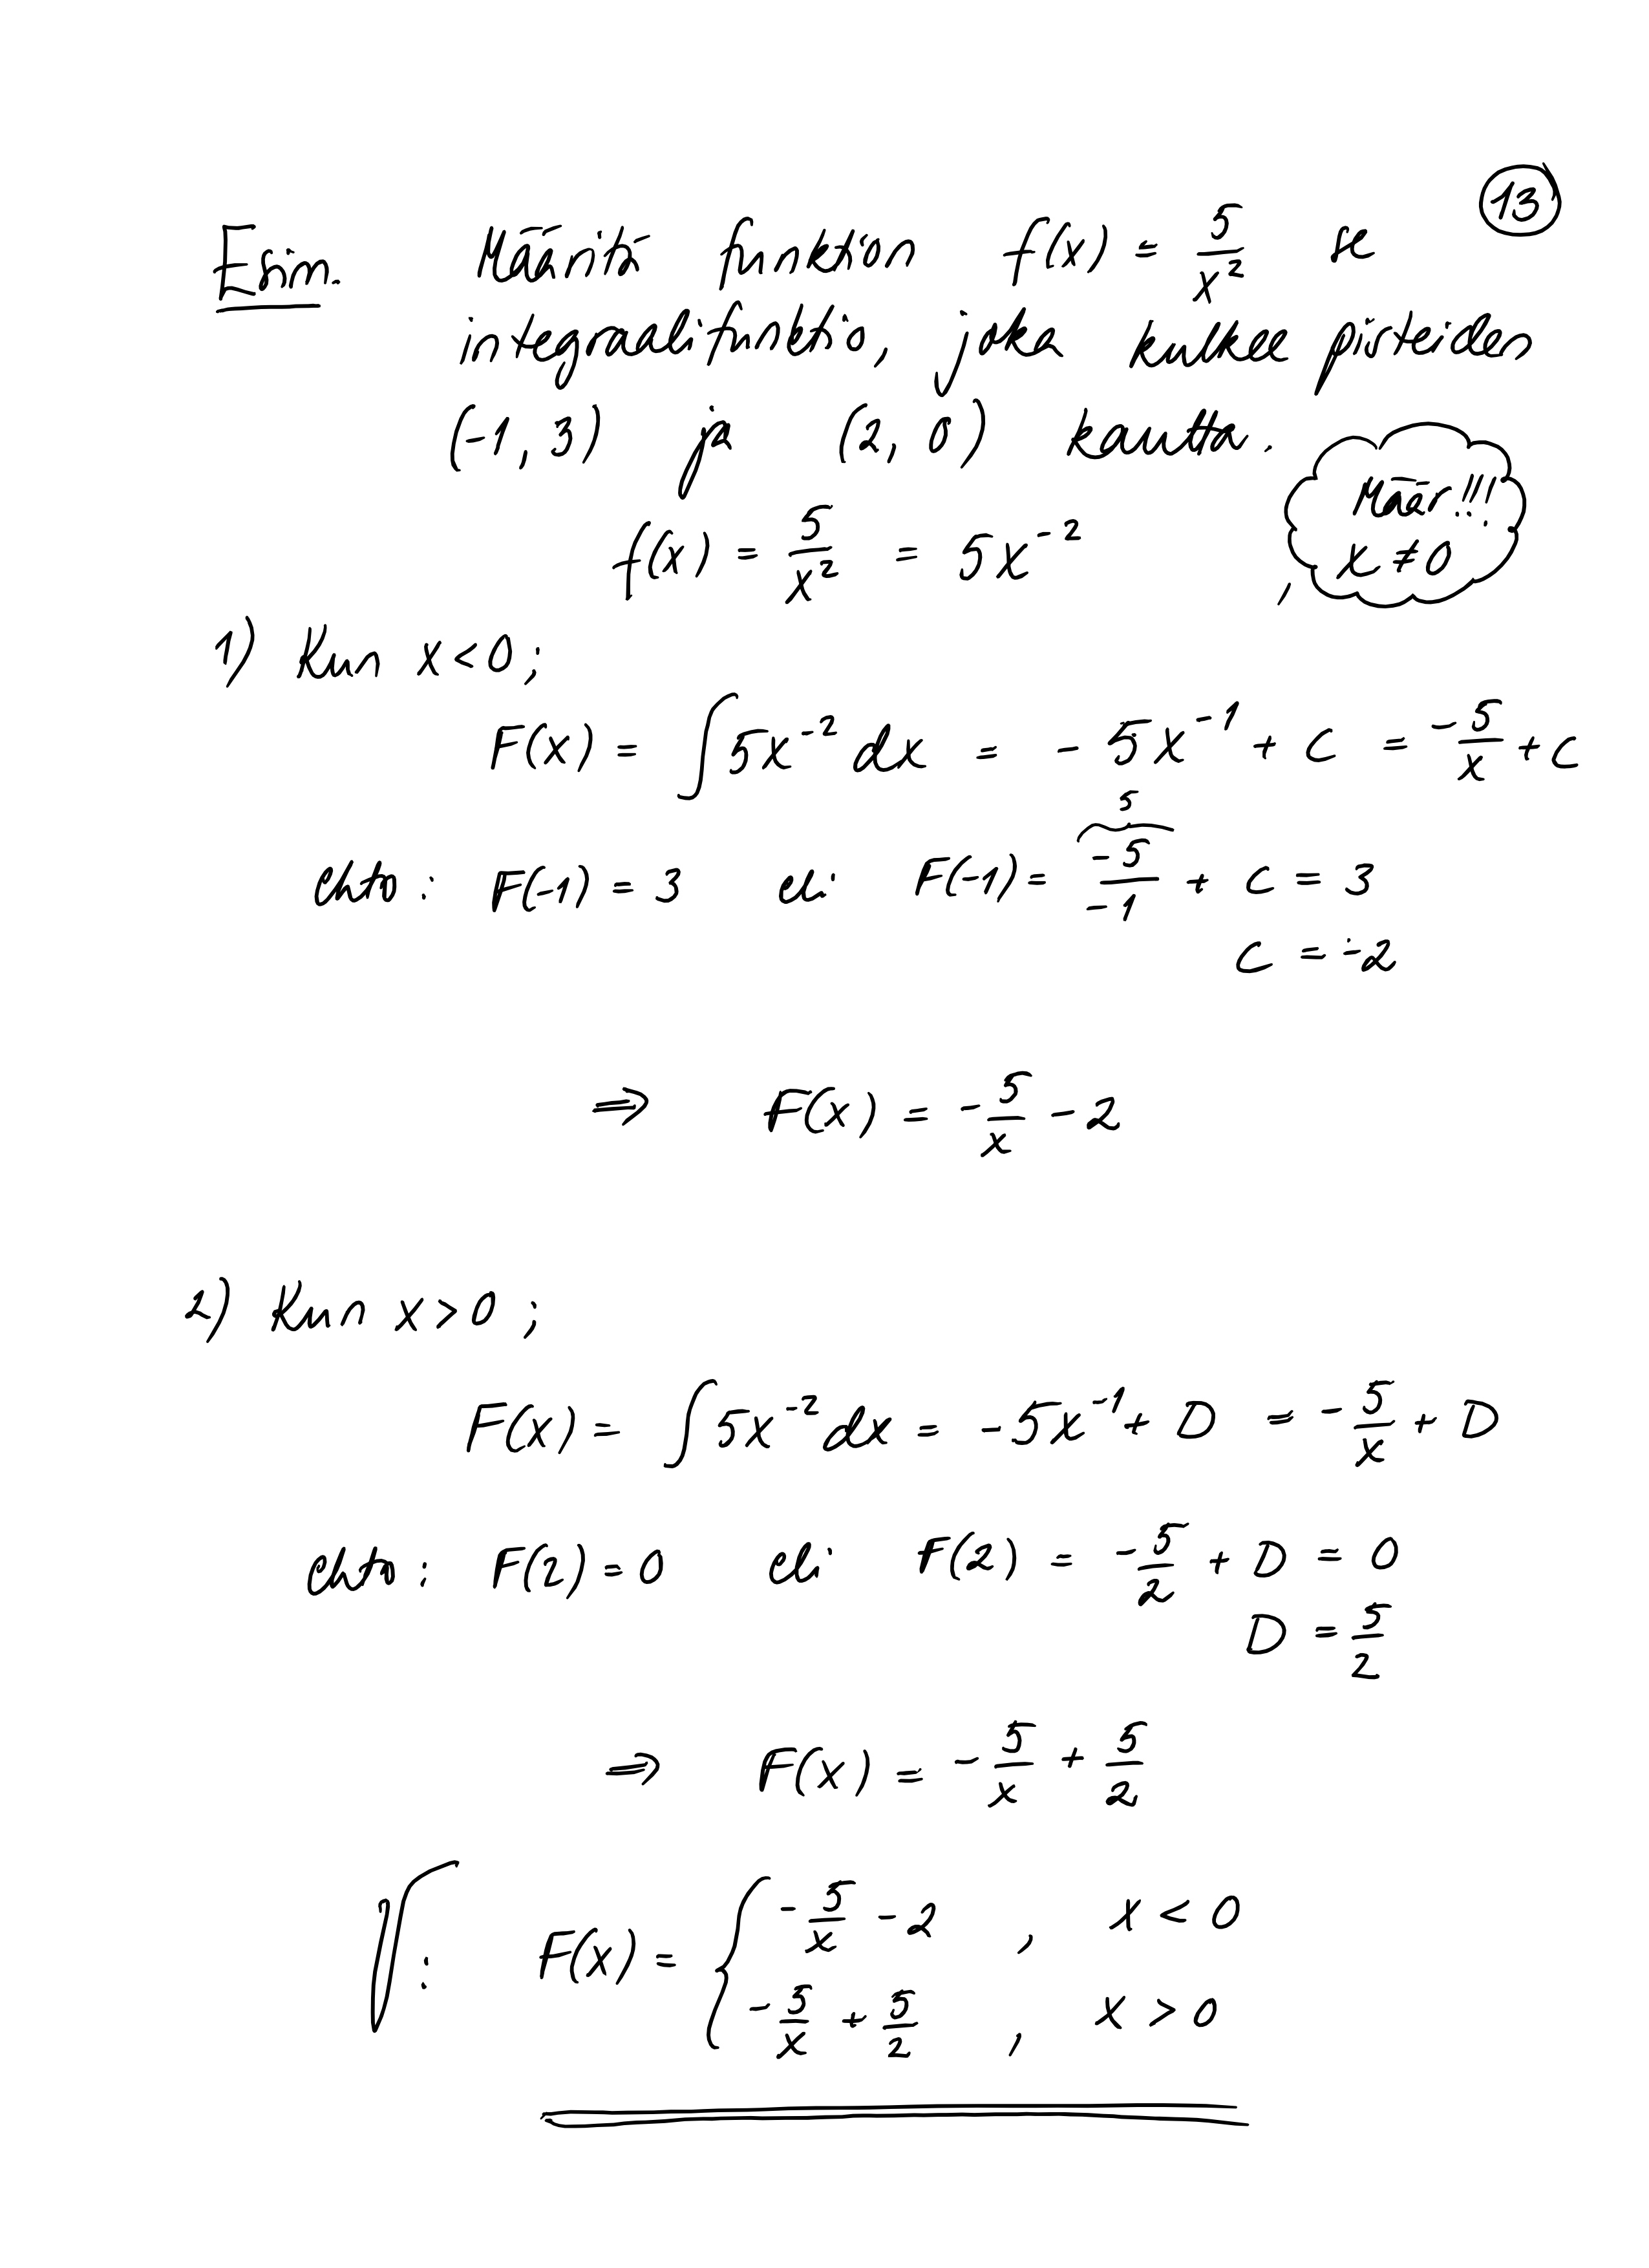 13
Esim. Määritä funktion f(x) = 5/x² se
integraalifunktio, joka kulkee pisteiden
(-1, 3) ja (2, 0) kautta.
f(x) = 5/x² = 5x⁻² , Määr.!!! x ≠ 0
1) Kun x < 0 ;
F(x) = ∫ 5x⁻² dx = - 5x⁻¹ + C = -5/x + C
5
ehto : F(-1) = 3 eli F(-1) = -5/-1 + C = 3
C = -2
⇒ F(x) = -5/x - 2
2) Kun x > 0 ;
F(x) = ∫ 5x⁻² dx = - 5x⁻¹ + D = -5/x + D
ehto : F(2) = 0 eli F(2) = -5/2 + D = 0
D = 5/2
⇒ F(x) = -5/x + 5/2
V : F(x) = { -5/x - 2 , x < 0
-5/x + 5/2 , x > 0